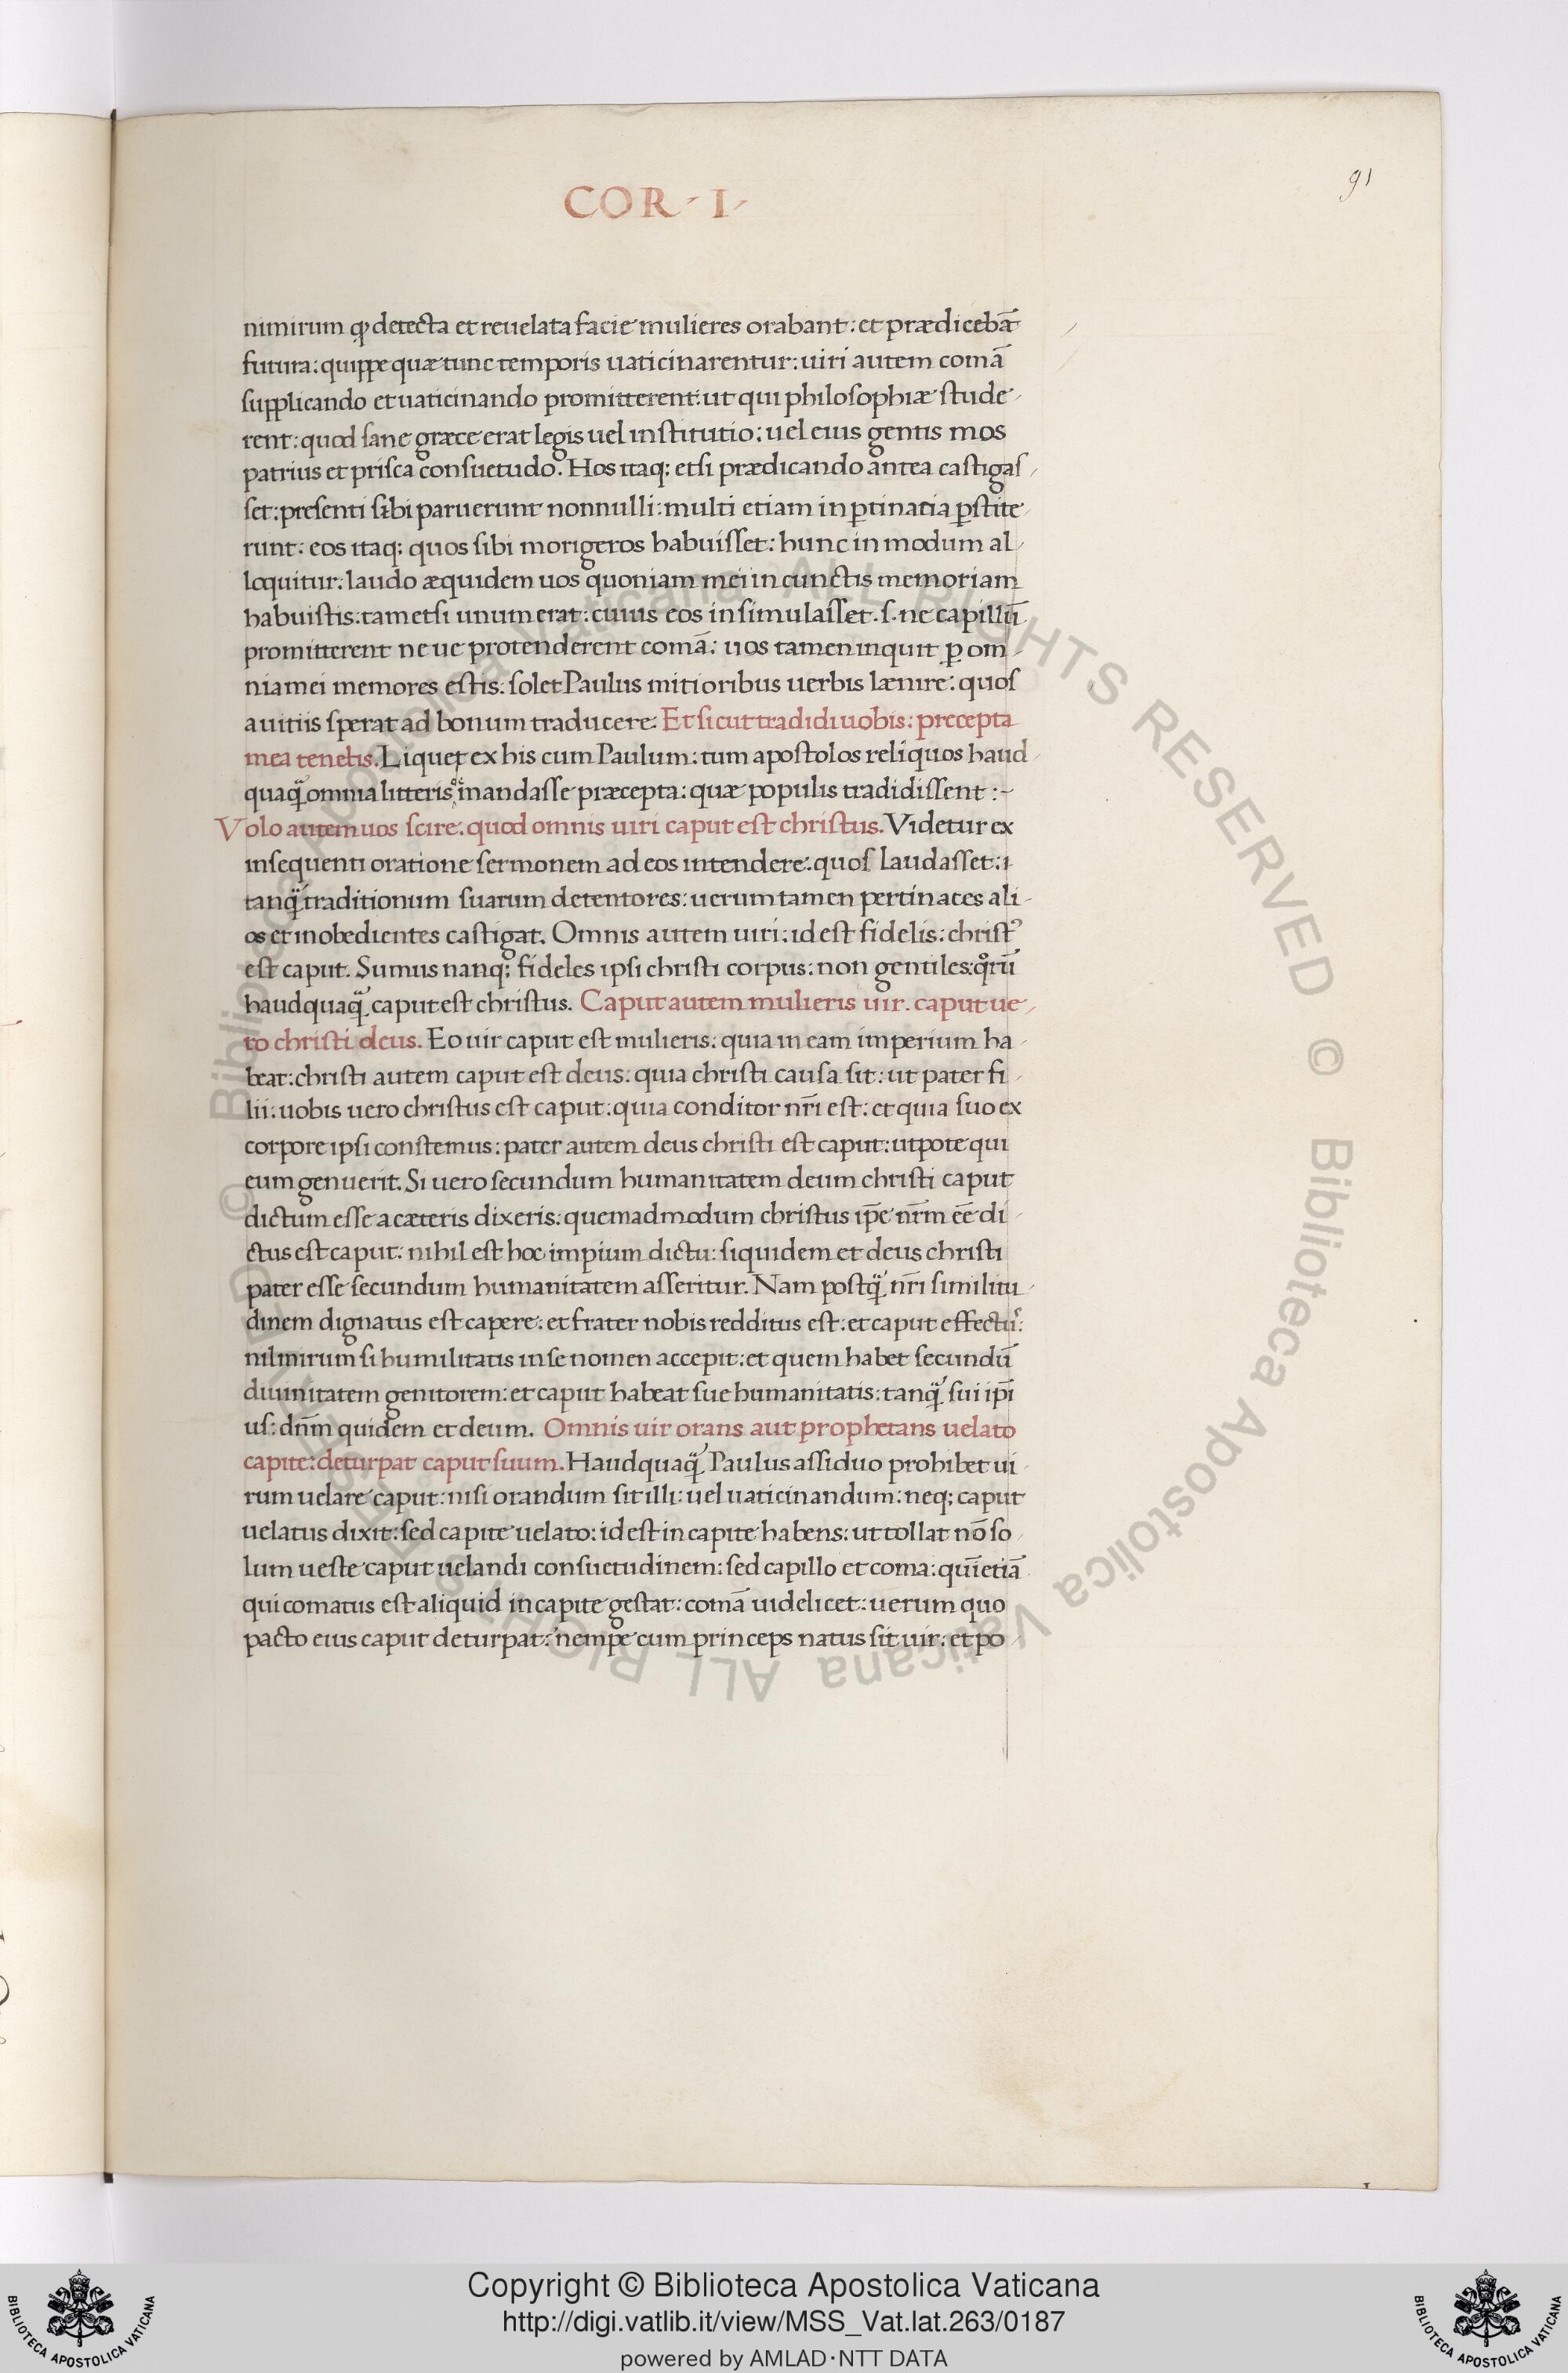 COR · I ·
91
nimirum ꝙ detecta et reuelata facie mulieres orabant: et prædicebāt
futura: quippe quæ tunc temporis uaticinarentur: uiri autem comā
supplicando et uaticinando promitterent: ut qui philosophiæ stude
rent: quod sane græce erat legis uel institutio: uel eius gentis mos
patrius et prisca consuetudo. Hos itaq; etsi prædicando antea castigas
set: presenti sibi paruerunt nonnulli: multi etiam in ꝑtinatia ꝑstite
runt: eos itaq; quos sibi morigeros habuisset: hunc in modum al
loquitur: laudo æquidem uos quoniam mei in cunctis memoriam
habuistis: tametsi unum erat: cuius eos insimulasset .s. ne capillū
promitterent neue protenderent comā: uos tamen inquit ꝑ om
nia mei memores estis: solet Paulus mitioribus uerbis lænire: quos
a uitiis sperat ad bonum traducere: Et sicut tradidi uobis: precepta
mea tenetis. Liquet ex his cum Paulum: tum apostolos reliquos haud
quaq̃ omnia litteris mandasse præcepta: quæ populis tradidissent :~
Volo autem uos scire: quod omnis uiri caput est christus. Videtur ex
insequenti oratione sermonem ad eos intendere: quos laudasset: ı
tanq̃ traditionum suarum detentores: uerum tamen pertinaces ali
os et inobedientes castigat. Omnis autem uiri: id est fidelis: christꝰ
est caput. Sumus nanq; fideles ipsi christi corpus: non gentiles: qͦrū
haudquaq̃ caput est christus. Caput autem mulieris uir. caput ue
ro christi deus. Eo uir caput est mulieris: quia in eam imperium ha
beat: christi autem caput est deus: quia christi causa sit: ut pater fi
lii: uobis uero christus est caput: quia conditor nr̄i est: et quia suo ex
corpore ipsi constemus: pater autem deus christi est caput: utpote qui
eum genuerit. Si uero secundum humanitatem deum christi caput
dictum esse a cæteris dixeris: quemadmodum christus ip̄e nr̄m eē di
ctus est caput: nihil est hoc impium dictu: siquidem et deus christi
pater esse secundum humanitatem asseritur. Nam postq̃ nr̄i similitu
dinem dignatus est capere: et frater nobis redditus est: et caput effectus:
nil mirum si humilitatis in se nomen accepit: et quem habet secundū
diuinitatem genitorem: et caput habeat sue humanitatis: tanq̃ sui ip̄i
us: dn̄m quidem et deum. Omnis uir orans aut prophetans uelato
capite: deturpat caput suum. Haudquaq̃ Paulus assiduo prohibet ui
rum uelare caput: nisi orandum sit illi: uel uaticinandum: neq; caput
uelatus dixit: sed capite uelato: id est in capite habens: ut tollat nō so
lum ueste caput uelandi consuetudinem: sed capillo et coma: quīetiā
qui comatus est aliquid in capite gestat: comā uidelicet: uerum quo
pacto eius caput deturpat: nempe cum princeps natus sit uir: et po
© Biblioteca Apostolica Vaticana ALL RIGHTS RESERVED © Biblioteca Apostolica Vaticana ALL RIGHTS RESERVED
Copyright © Biblioteca Apostolica Vaticana
http://digi.vatlib.it/view/MSS_Vat.lat.263/0187
powered by AMLAD·NTT DATA
BIBLIOTECA APOSTOLICA VATICANA
BIBLIOTECA APOSTOLICA VATICANA